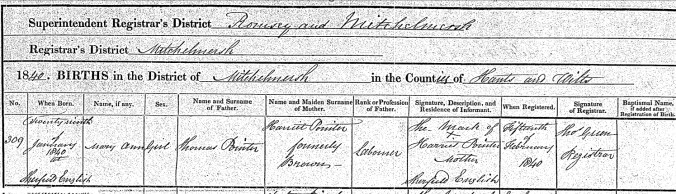 Superintendent Registrar's District Romsey and Mitchelmersh
Registrar's District Mitchelmersh
1840. BIRTHS in the District of Mitchelmersh in the Counties of Hants and Wilts
No. When Born. Name, if any. Sex. Name and Surname of Father. Name and Maiden Surname of Mother. Rank or Profession of Father. Signature, Description, and Residence of Informant. When Registered. Signature of Registrar. Baptismal Name, if added after Registration of Birth.
309 Twenty ninth January 1840 at Sherfield English Mary Ann Girl Thomas Pointer Harriet Pointer formerly Browns Labourer The Mark of + Harriet Pointer Mother Sherfield English Fifteenth February 1840 Thos Green Registrar